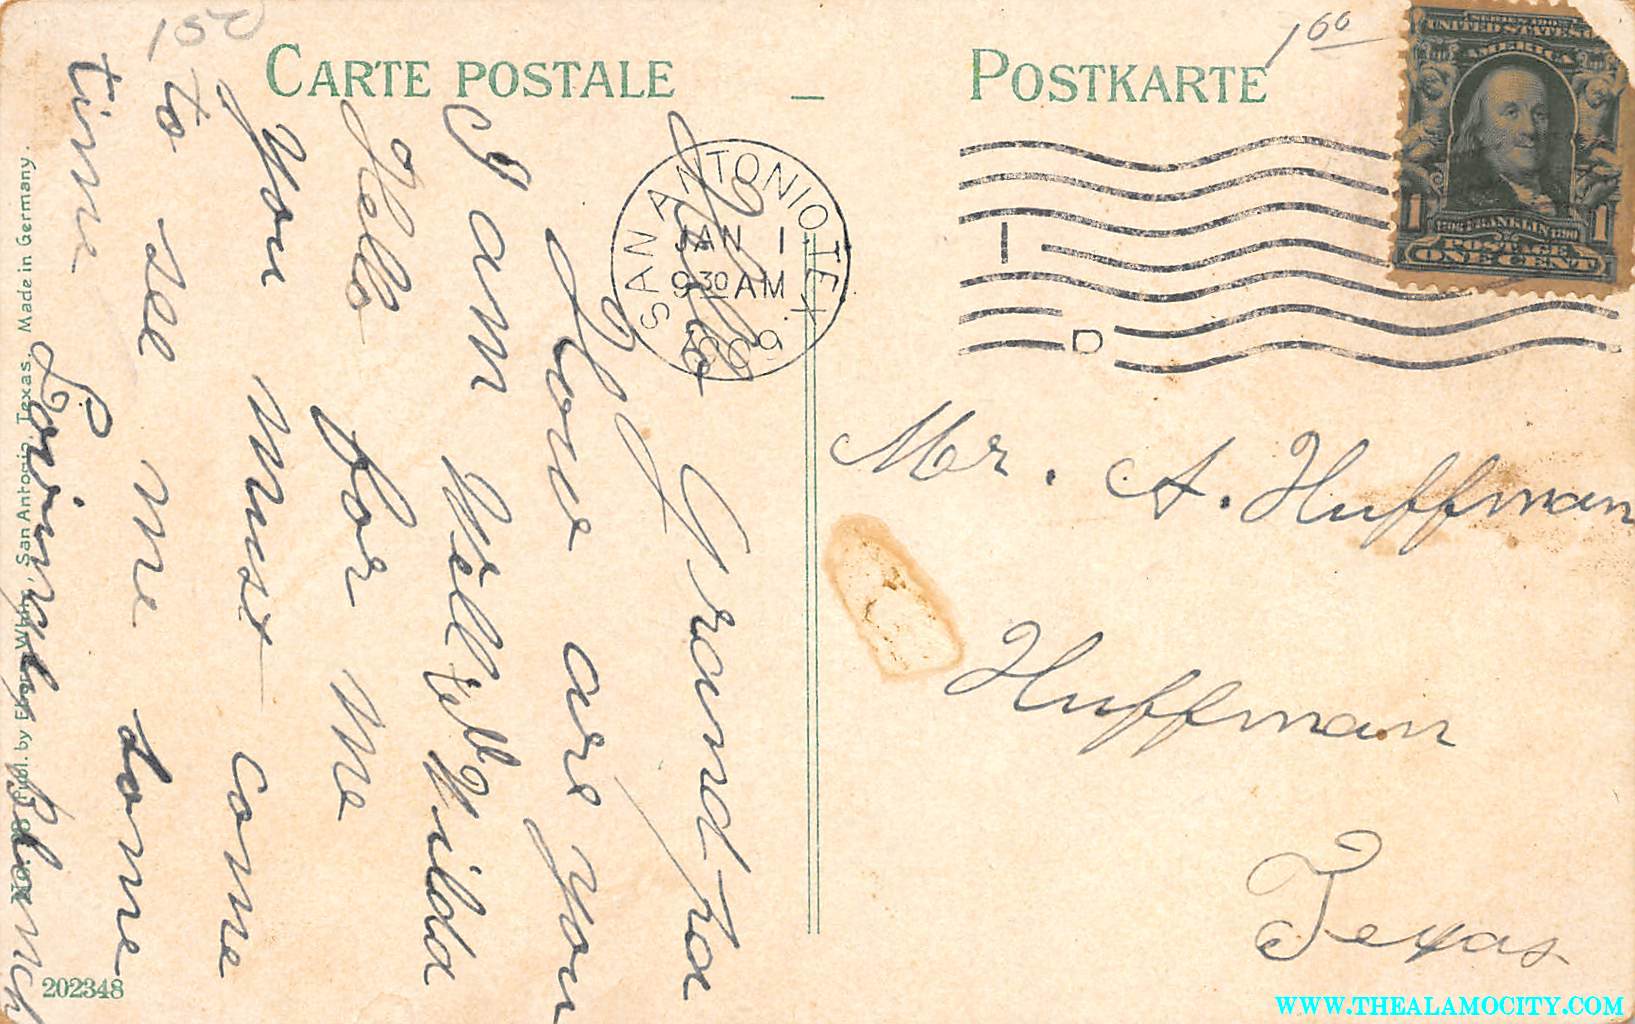 CARTE POSTALE
POSTKARTE
150
1 00
SERIES 1902
UNITED STATES OF
AMERICA
1 1
1706 FRANKLIN 1790
POSTAGE
ONE CENT
SAN ANTONIO, TEX.
JAN 1
9 30 AM
1909
1
D
Hello Grand-Pa
How are you
I am Well tell Hilda
Hello for me
You Must come
to see me some
time
Lovingly Blanch
Mr. A. Huffman
Huffman
Texas
No. 33 Publ. by Ebers-White, San Antonio, Texas. Made in Germany.
202348
WWW.THEALAMOCITY.COM